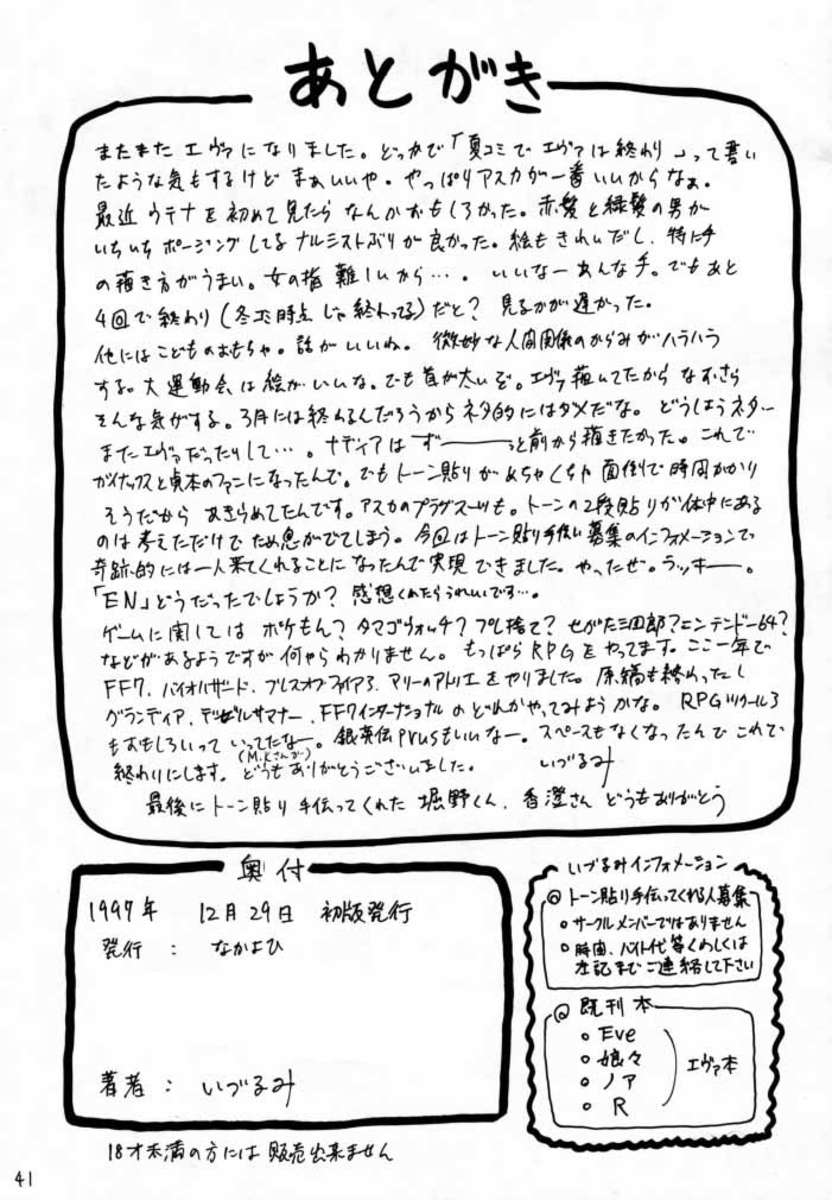 あとがき
またまたエヴァになりました。どっかで「夏コミでエヴァは終わり」って書い
たような気もするけどまぁいいや。やっぱりアスカが一番いいからなぁ。
最近ウテナを初めて見たらなんかおもしろかった。赤髪と緑髪の男が
いちいちポージングしてるナルシストぶりが良かった。絵もきれいだし、特に手
の描き方がうまい。女の指難しいから…。いいなーあんな手。でもあと
4回で終わり(冬コミ時点じゃ終わってる)だと？見るのが遅かった。
他にはこどものおもちゃ。話がいいね。微妙な人間関係のからみがハラハラ
する。大運動会は絵がいいな。でも首が太いぞ。エヴァ描いてたからなおさら
そんな気がする。3月には終わるんだろうからネタ的にはダメだな。どうしようネター
またエヴァだったりして…。ナディアはずーーーっと前から描きたかった。これで
ガイナックスと貞本のファンになったんで。でもトーン貼りがめちゃくちゃ面倒で時間かかり
そうだからあきらめてたんです。アスカのプラグスーツも。トーンの2段貼りが体中にある
のは考えただけでため息がでてしまう。今回はトーン貼り手伝い募集のインフォメーションで
奇跡的には一人来てくれることになったんで実現できました。やったぜ。ラッキー。
「EN」どうだったでしょうか？感想くれたらうれしいです…。
ゲームに関してはポケもん？タマゴウォッチ？プレ捨て？せがた三四郎？ニンテンドー64？
などがあるようですが何やらわかりません。もっぱらRPGをやってます。ここ一年で
FF7、バイオハザード、ブレスオブファイア3、マリーのアトリエをやりました。原稿も終わったし
グランディア、デビルサマナー、FF7インターナショナルのどれかやってみようかな。RPGツクール3
もおもしろいっていってたなー。銀英伝prusもいいなー。スペースもなくなったんでこれで
(M.Kさんが)
終わりにします。どうもありがとうございました。 いづるみ
最後にトーン貼り手伝ってくれた堀野くん、香澄さんどうもありがとう
奥付
1997年 12月29日 初版発行
発行 : なかよひ
著者 : いづるみ
18才未満の方には販売出来ません
いづるみインフォメーション
@トーン貼り手伝ってくれる人募集
○サークルメンバーではありません
○時間、バイト代等くわしくは
左記までご連絡して下さい
@既刊本
○Eve
○娘々
○ノア
○R
エヴァ本
41